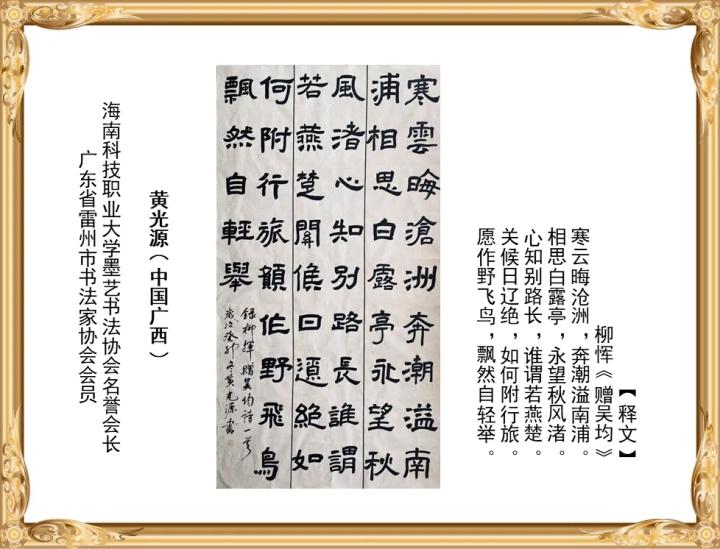 【释文】
柳恽《赠吴均》
寒云晦沧洲，奔潮溢南浦。
相思白露亭，永望秋风渚。
心知别路长，谁谓若燕楚。
关候日辽绝，如何附行旅。
愿作野飞鸟，飘然自轻举。
寒雲晦滄洲奔潮溢南
浦相思白露亭永望秋
風渚心知別路長誰謂
若燕楚關候日遼絕如
何附行旅願作野飛鳥
飄然自輕舉
錄柳惲贈吳均詩一首
歲次癸卯冬黃光源書
黄光源（中国广西）
海南科技职业大学墨艺书法协会名誉会长
广东省雷州市书法家协会会员